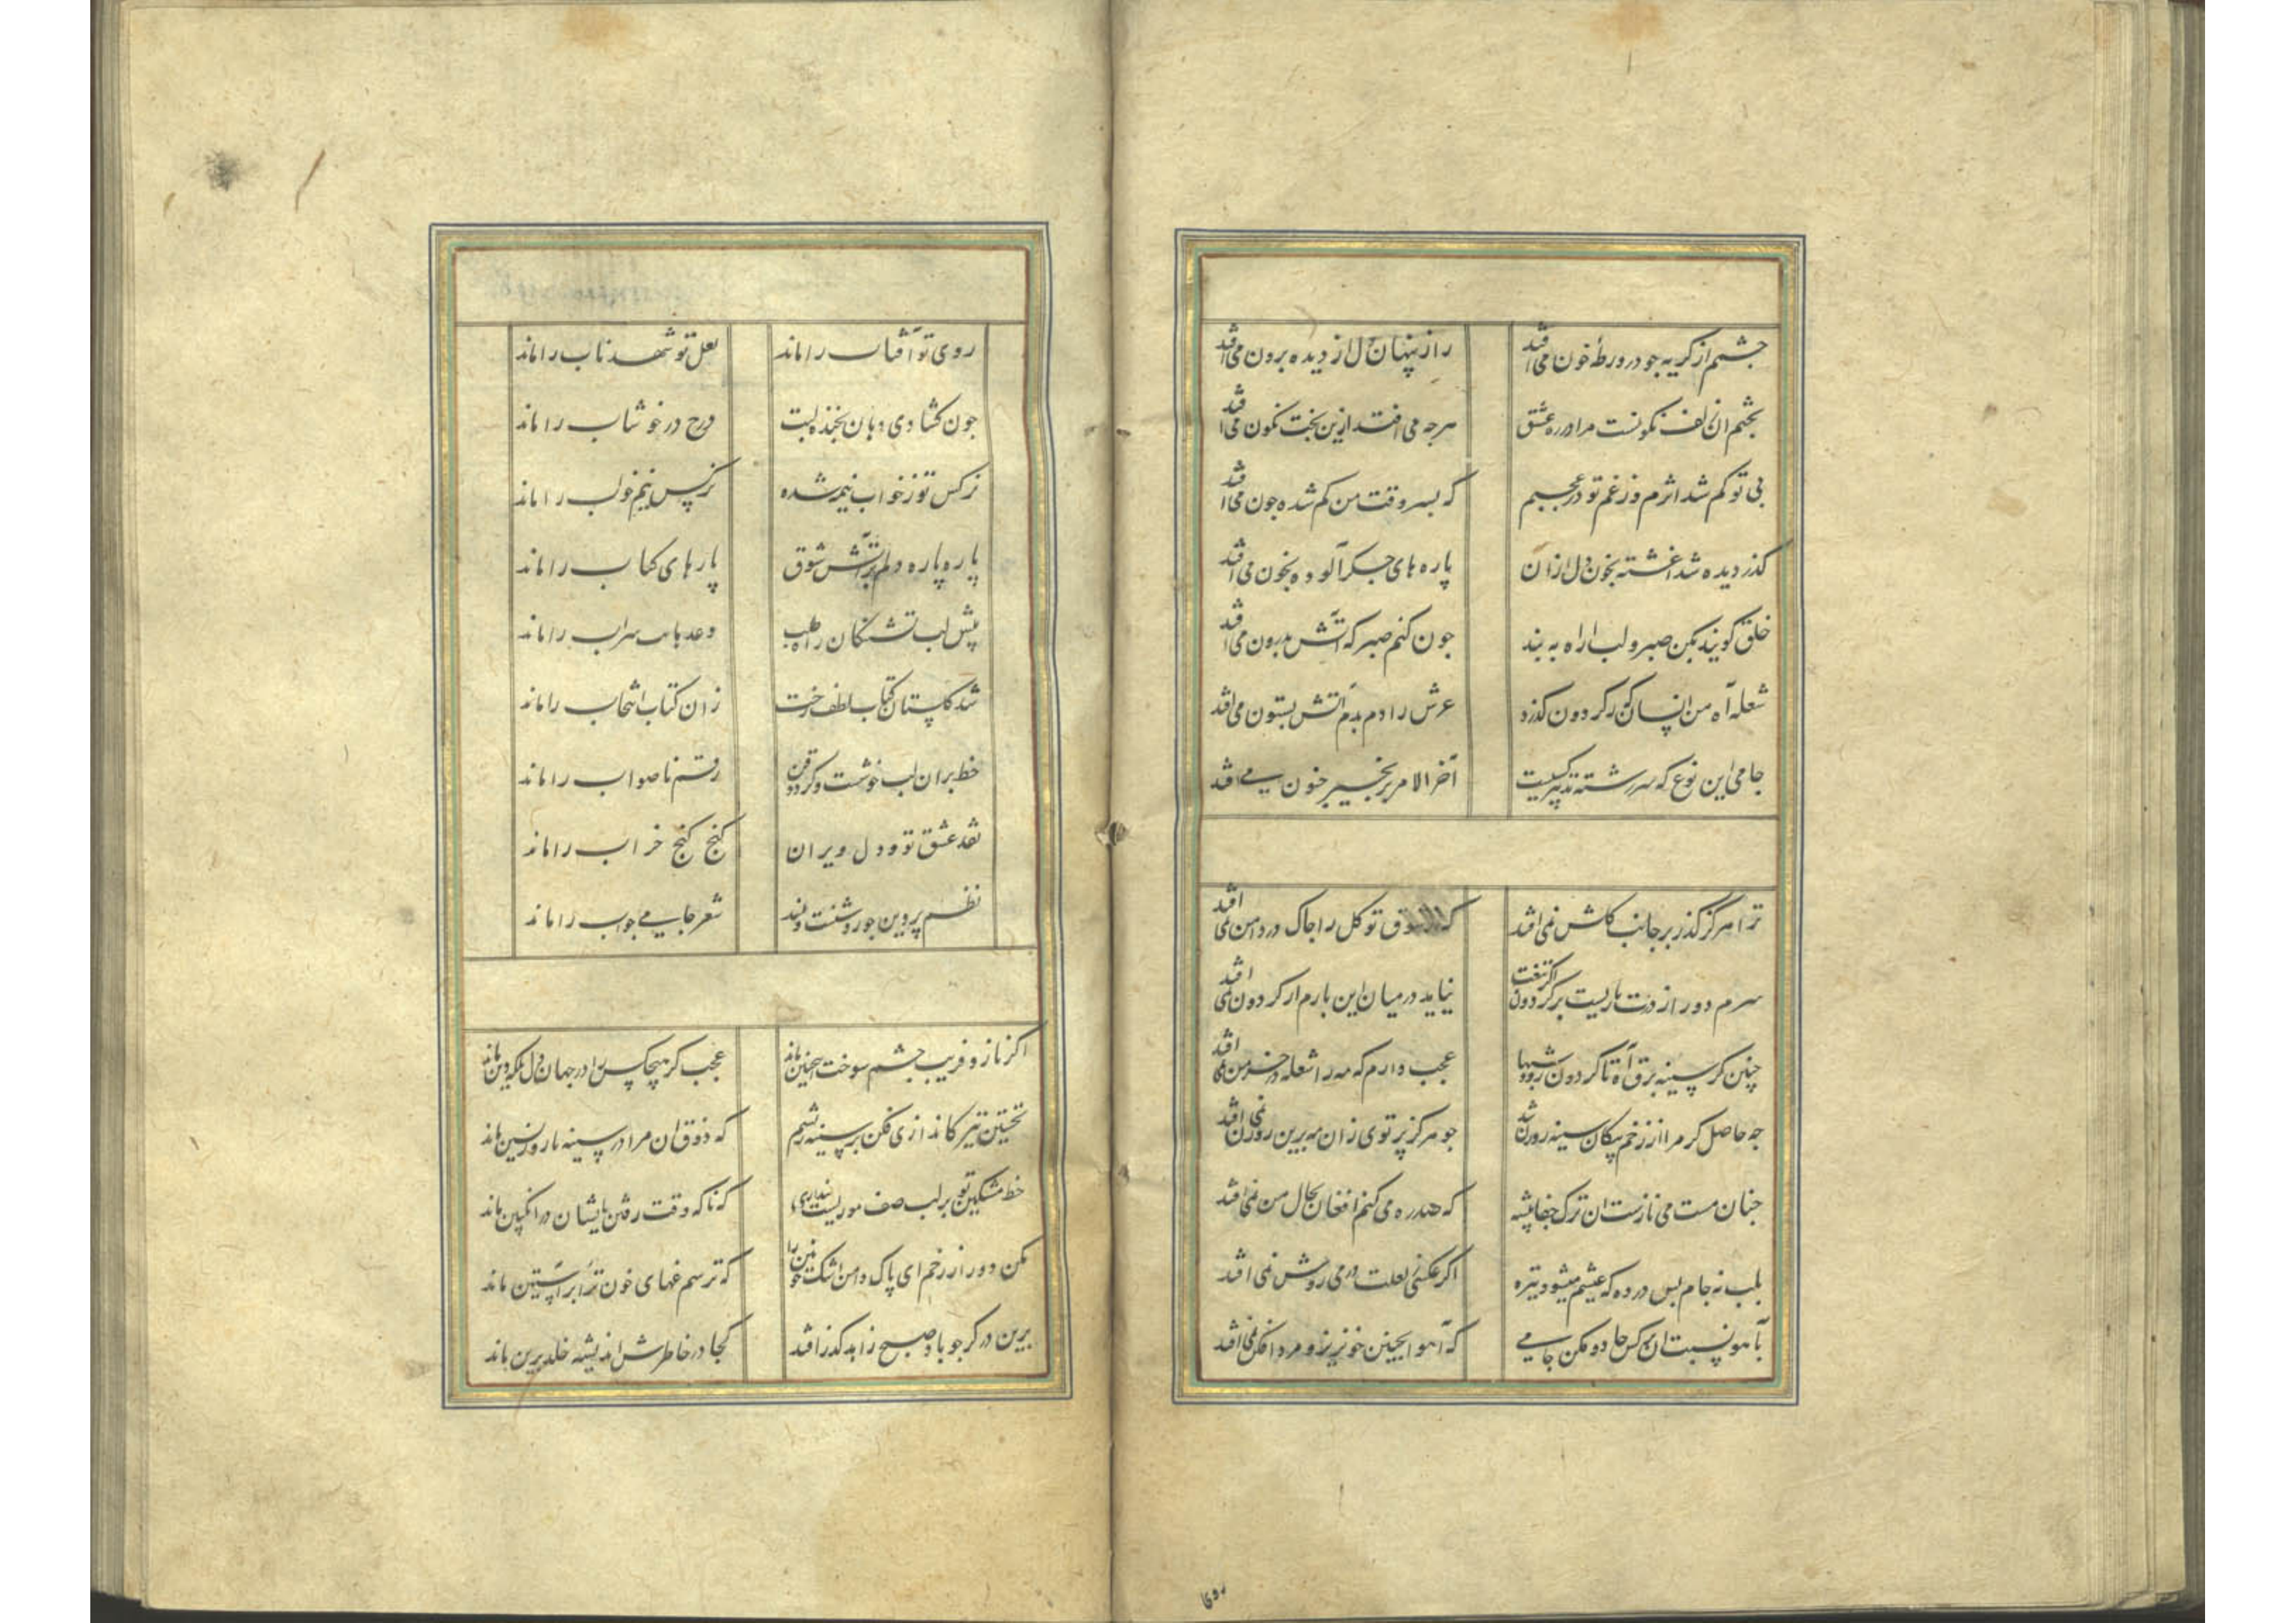 چشمم از کریه جو در ورطهٔ خون می افتد راز پنهان دل از دیده برون می افتد
بخشم ان زلف نکونست مرا در ره عشق هرجه می افتد ازین بخت نکون می افتد
بی تو کم شد اثرم وز غم تو در عجبم که بسر وقت من کم شده جون می افتد
کذر دیده شد اغشته بخون دل ازان پاره های جکر آلوده بخون می افتد
خلق کویند بکن صبر و لب از اه به بند جون کنم صبر که آتش بدرون می افتد
شعله آه من اینسان که ز کردون کذرد عرش را دم بدم آتش بستون می افتد
جامی این نوع که سررشته تدبیر کسیخت آخر الامر بزنجیر جنون می افتد
ترا هرکز کذر بر جانب کلشن نمی افتد که از شوق تو کل را جاک در دامن نمی افتد
سرم دور از درت باریست بر کردن نیاید در میان این بارم از کردن نمی افتد
چنین کز سینه برق آه تا کردون رود شبها عجب دارم که مه را شعله در خرمن نمی افتد
جه حاصل کر مرا از زخم پیکان سینه روزن شد جو هرکز پرتوی زان مه برین روزن نمی افتد
جنان مست می نازست ان ترک جفاپیشه که هر ره می کنم افغان بحال من نمی افتد
بلب نه جام پس در ده که عیشم میشود تیره اکر عکسی ز لعلت در می روشن نمی افتد
بآهو نسبت ان نرکس جادو مکن جامی که آهو اینچنین خونریز و مرد افکن نمی افتد
روی
روی تو آفتاب را ماند لعل تو شهد ناب را ماند
جون کشادی دهان بخنده لبت درج در خوشاب را ماند
نرکس تو ز خواب نیم شده نرکس نیم خواب را ماند
پاره پاره دلم بر آتش شوق پارهای کباب را ماند
پیش لب تشنکان راه طلب وعدهات سراب را ماند
شد کلستان کتاب لطف رخت زان کتاب انتخاب را ماند
خط بران لب خوشست و کرد ذقن رقم ناصواب را ماند
نقد عشق تو و دل ویران کنج کنج خراب را ماند
نظم پروین جو روشنست و بلند شعر جامی جواب را ماند
اکر ناز و فریب چشم شوخت اینچنین ماند عجب کر هیچکس را در جهان دل بلکه دین ماند
نخستین تیر کاندازی فکن بر سینه ریشم که ذوق ان مرا در سینه تا روز پسین ماند
خط مشکین تو بر لب صف موریست پنداری که ناکه وقت رفتن پایشان در انکبین ماند
مکن دور از رخم ای پاک دامن اشک خونین را که ترسم داغهای خون ترا بر آستین ماند
برین در کر جو باد صبح زاهد کذر افتد کجا در خاطرش اندیشه خلد برین ماند